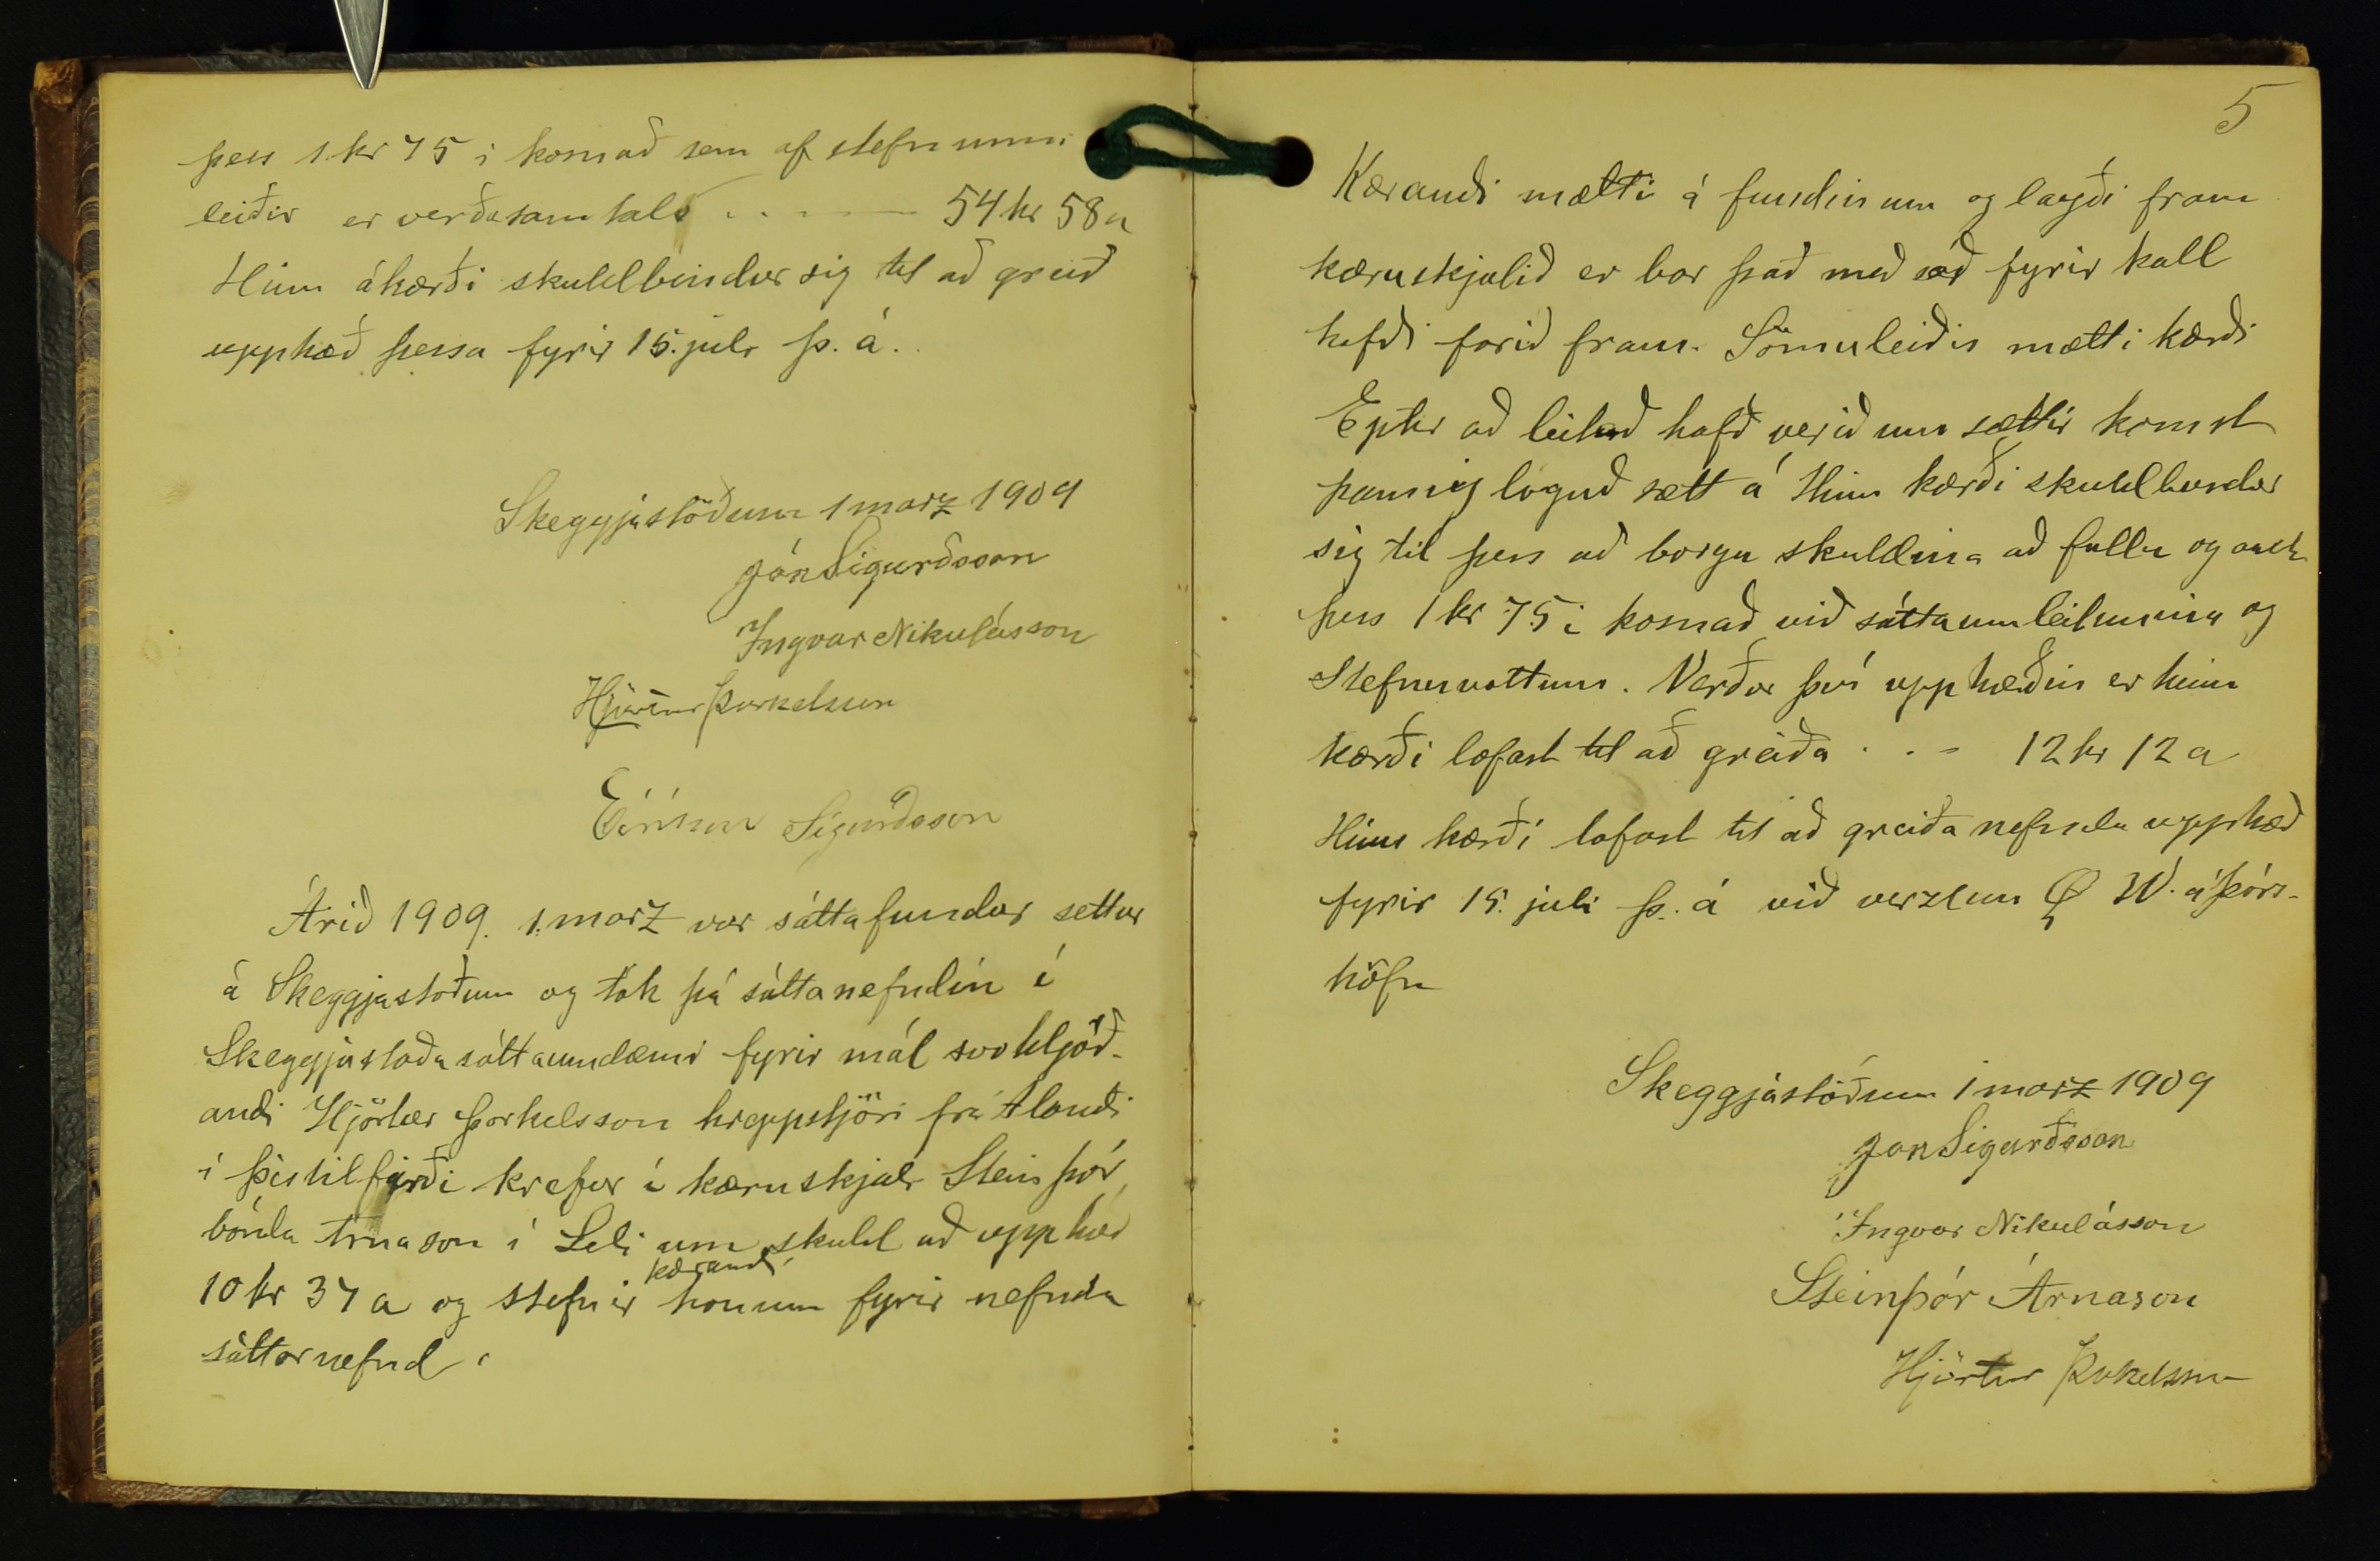 þess 1. kr 75 i kosnað sem af stefnunni
leiðir er verða samtals . . . — 54 kr 58 a
Hinn ákærði skuldbindur sig til að greið
upphæð þessa fyrir 15. juli þ. á.
Skeggjastöðum 1 marz 1909
Jón Sigurðsson
Ingvar Nikulásson
Hjörtur Þorkelsson
Eiríkur Sigurðsson
Árið 1909. 1. marz var sáttafundur settur
á Skeggjastoðum og tók þá sáttanefndin í
Skeggjastaða sáttaumdæmi fyrir mál svohljóð-
andi Hjörtur Þorkelsson hreppstjóri frá Alandi
i Þistilfirði krefur i kæruskjali Steinþór
bónda Arnason í Seli um skuld að upphæð
10 kr 37 a og stefnir kærandi honum fyrir nefnda
sáttarnefnd.
5
Kærandi mætti á fundinum og lagði fram
kæruskjalið er bar það með sér fyrir kall
hafði farið fram. Sömuleiðis mætti kærði
Eptir að leitað hafð verið um sættir komst
þannig löguð sætt á Hinn kærði skuldbindur
sig til þess að borga skuldina að fullu og auk
þess 1 kr 75 i kosnað við sáttaumleitunina og
Stefnuvottum. Verður því upphæðin er hinn
kærði lofast til að greiða . . - 12 kr 12 a
Hinn kærði lofast til að greiða nefnda upphæð
fyrir 15. juli þ. á við verzlun Ø W. á Þórs-
höfn
Skeggjastöðum 1 marz 1909
Jon Sigurðsson
Ingvar Nikulásson
Steinþór Árnason
Hjörtur Þorkelsson